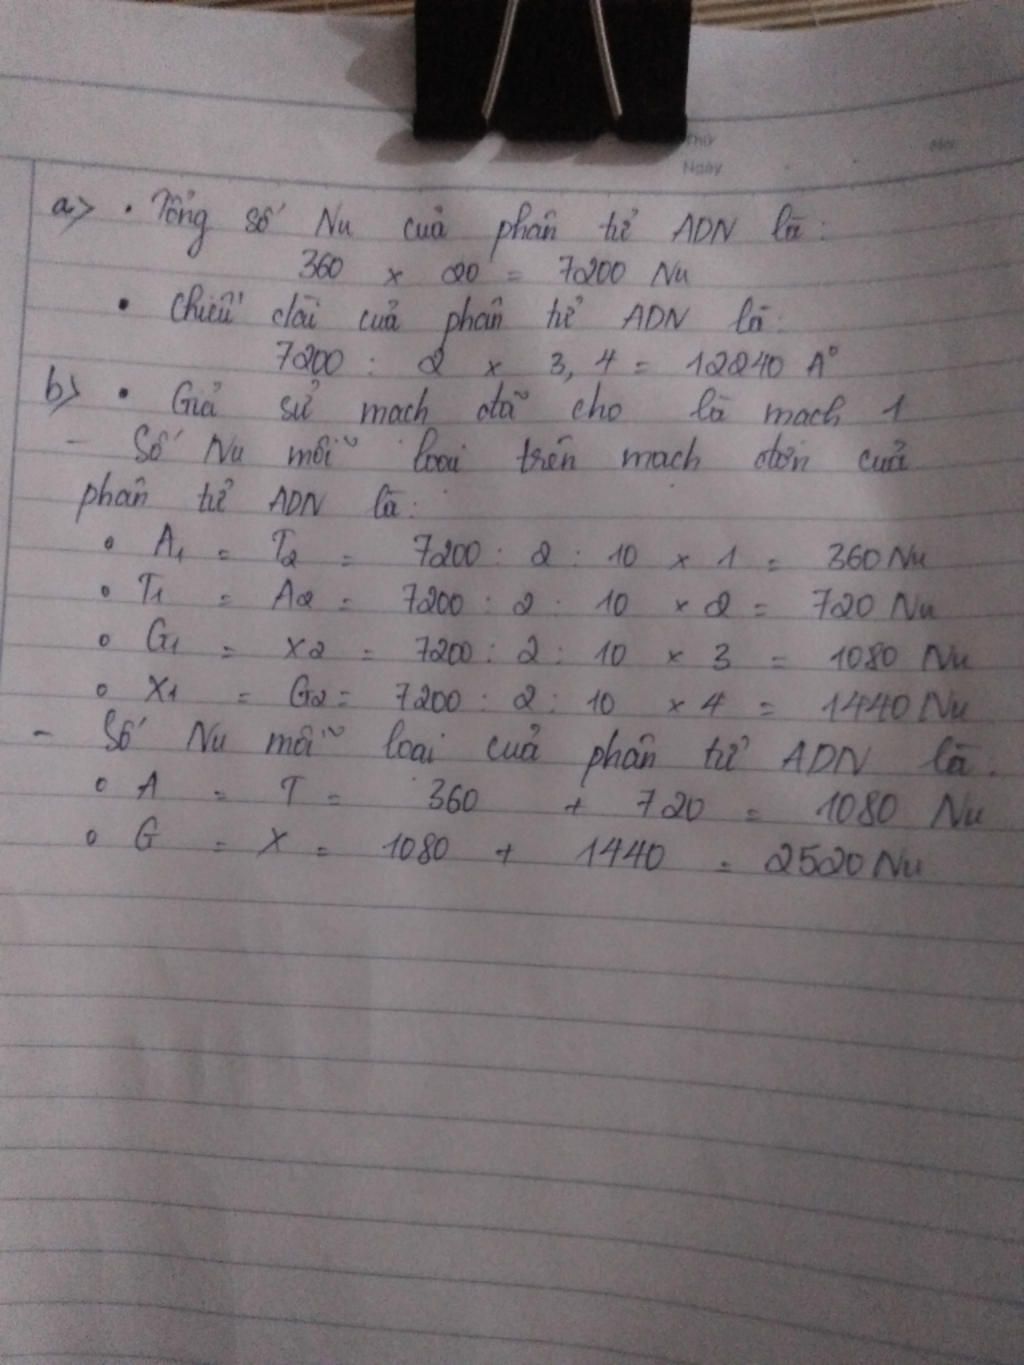 Thứ
Ngày
a> • Tổng số Nu của phân tử ADN là:
360 x 20 = 7200 Nu
• Chiều dài của phân tử ADN là:
7200 : 2 x 3,4 = 12240 A°
b> • Giả sử mạch đã cho là mạch 1
- Số Nu mỗi loại trên mạch đơn của
phân tử ADN là:
• A1 = T2 = 7200 : 2 : 10 x 1 = 360 Nu
• T1 = A2 = 7200 : 2 : 10 x 2 = 720 Nu
• G1 = X2 = 7200 : 2 : 10 x 3 = 1080 Nu
• X1 = G2 = 7200 : 2 : 10 x 4 = 1440 Nu
- Số Nu mỗi loại của phân tử ADN là:
• A = T = 360 + 720 = 1080 Nu
• G = X = 1080 + 1440 = 2520 Nu